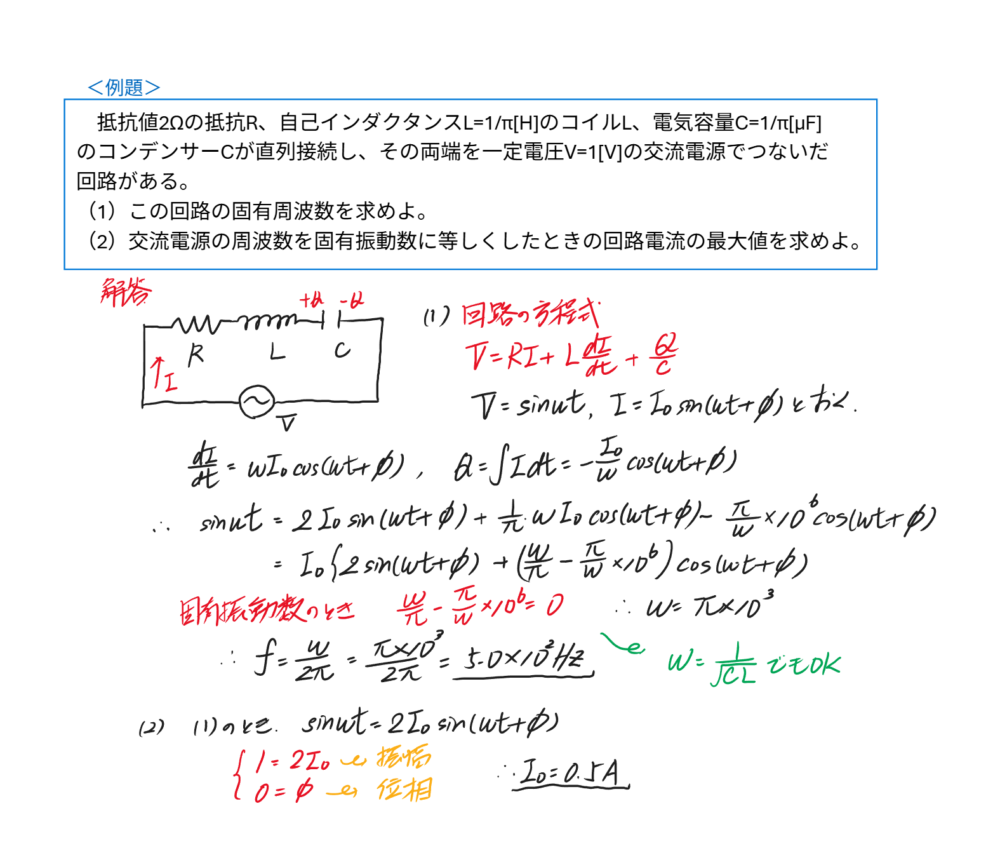 ＜例題＞
抵抗値2Ωの抵抗R、自己インダクタンスL=1/π[H]のコイルL、電気容量C=1/π[μF]
のコンデンサーCが直列接続し、その両端を一定電圧V=1[V]の交流電源でつないだ
回路がある。
（1）この回路の固有周波数を求めよ。
（2）交流電源の周波数を固有振動数に等しくしたときの回路電流の最大値を求めよ。
解答
+Q -Q
R L C
I
V
(1) 回路の方程式
V=RI+L dI/dt + Q/C
V=sinωt, I=I₀sin(ωt+φ)とおく.
dI/dt = ωI₀cos(ωt+φ), Q=∫Idt=-I₀/ω cos(ωt+φ)
∴ sinωt = 2I₀sin(ωt+φ)+1/π・ωI₀cos(ωt+φ)- π/ω×10⁶cos(ωt+φ)
= I₀{2sin(ωt+φ)+(ω/π - π/ω×10⁶)cos(ωt+φ)
固有振動数のとき ω/π - π/ω×10⁶=0 ∴ ω=π×10³
∴ f=ω/2π = π×10³/2π = 5.0×10²Hz
ω=1/√CL でもOK
(2) (1)のとき. sinωt=2I₀sin(ωt+φ)
{ 1=2I₀ 振幅
0=φ 位相
∴ I₀=0.5A